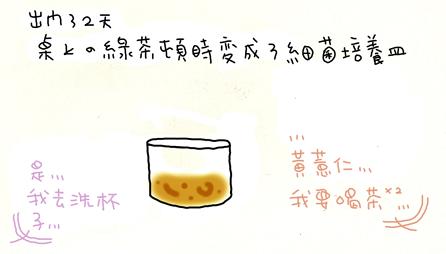 出門了2天
桌上の綠茶頓時變成了細菌培養皿
是...
我去洗杯
子...
...
黃薏仁...
我要喝茶×2...